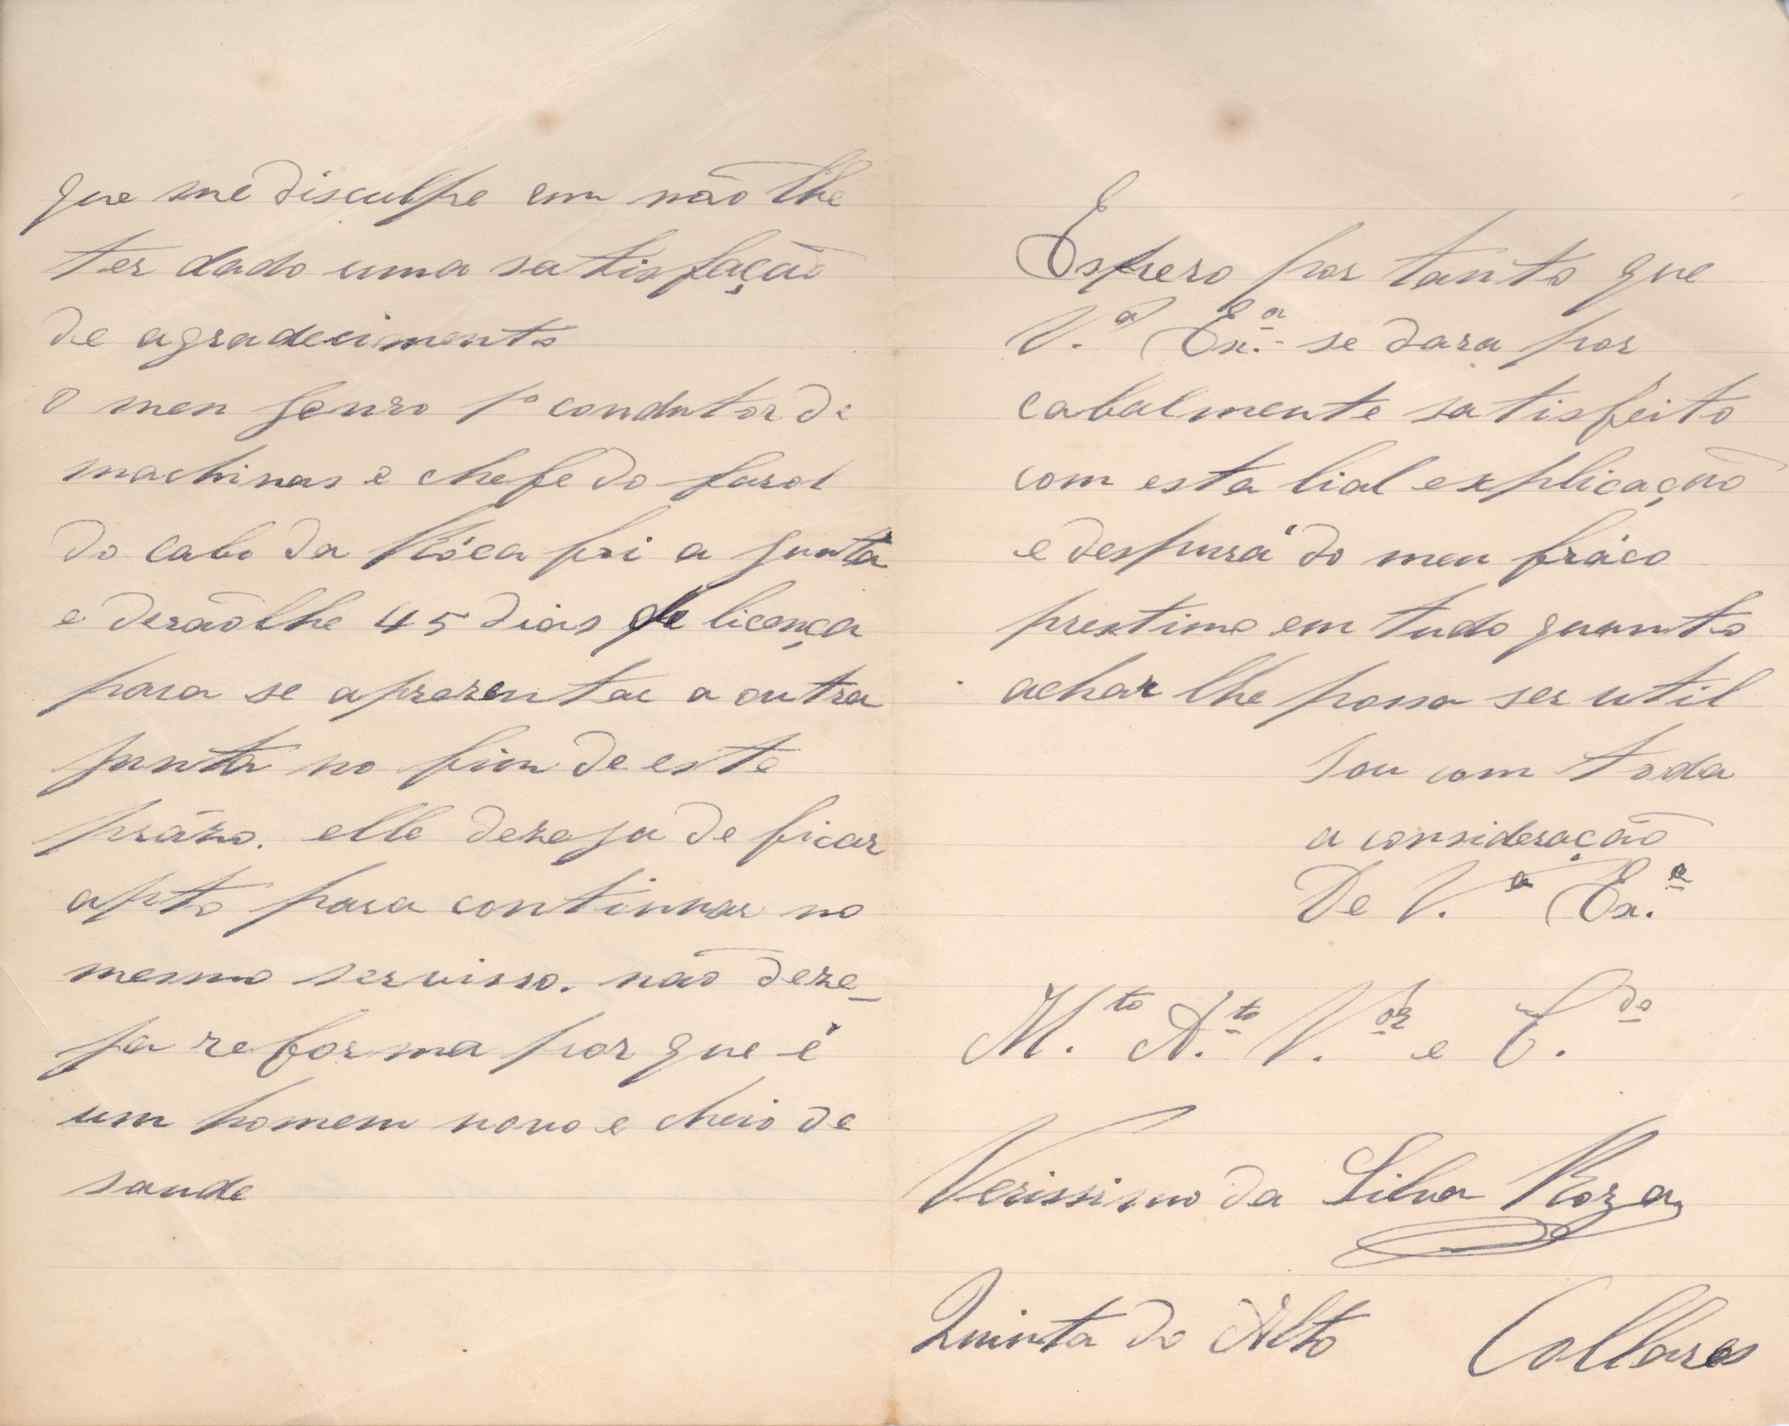 que me disculpe em não lhe
ter dado uma satisfação
de agradecimento
O meu genro 1º condutor de
machinas e chefe do farol
do cabo da Róca foi a junta
e derãolhe 45 dias de licença
para se aprezentar a outra
junta no fim de este
prázo. elle dezeja de ficar
apto para continuar no
mesmo servisso. não deze-
ja reforma por que é
um homem novo e cheio de
saude
Espero por tanto que
V.ª Ex.ª se dara por
cabalmente satisfeito
com esta lial explicação
e despurá do meu fráco
prestimo em tudo quanto
achar lhe possa ser util
Sou com toda
a consideração
De V.ª Ex.ª
M.to A.to V.or e C.do
Verissimo da Silva Roza
Quinta do Alto Collares